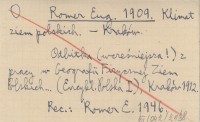 O Romer Eug. 1909. Klimat
ziem polskich. – Kraków.
Odbitka (wcześniejsza!) z
pracy w Geografii Fizycznej Ziem
Polskich. (Encykl. Polska I.) Kraków 1912.
Rec.: Romer E. 1946.